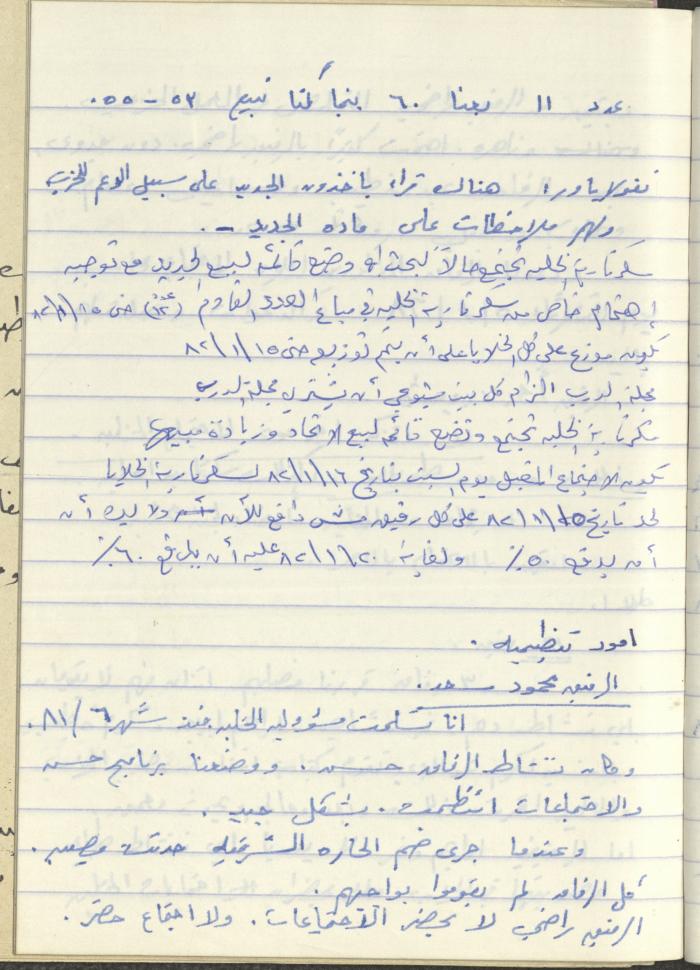 عدد 11 بعنا 60 بينما كنا نبيع 53 - 55.
نقولا ياور: هنالك قراء ياخذون الجديد على سبيل الدعم للحزب
ولهم ملاحظات على مادة الجديد -.
سكرتارية الخلية تجتمع حالاً لبحث ووضع قائمة لبيع الجديد مع توجيه
إهتمام خاص من سكرتارية الخلية في مباع العدد القادم (عدد 12) حتى 15/1/82
يكون موزع على كل الخلايا على أن يتم توزيعه حتى 15/1/82
مجلة الدرب الزام كل بيت شيوعي أن يشتري مجلة الدرب
سكرتارية الخلية تجتمع وتضع قائمة لبيع الاتحاد وزيادة مبيعها
يكون الاجتماع المقبل يوم السبت بتاريخ 16/1/82 لسكرتارية الخلايا
لحد تاريخ 15/1/82 على كل رفيق مش دافع للأن ولا ليرة أن
أن يدفع 50% ولغاية 20/1/82 عليه أن يدفع 60%
امور تنظيميه.
الرفيق محمود سعد.
انا تسلمت مسؤولية الخلية منذ شهر 6/81.
وكان نشاط الرفاق حسن. ووضعنا برنامج حسن
والاجتماعات انتظمت. بشكل جيد.
وعندما جرى ضم الحارة الشرقية حدثت مصيبة.
كل الرفاق لم يقوموا بواجبهم.
الرفيق راضي لا يحضر الاجتماعات. ولا اجتماع حضر.